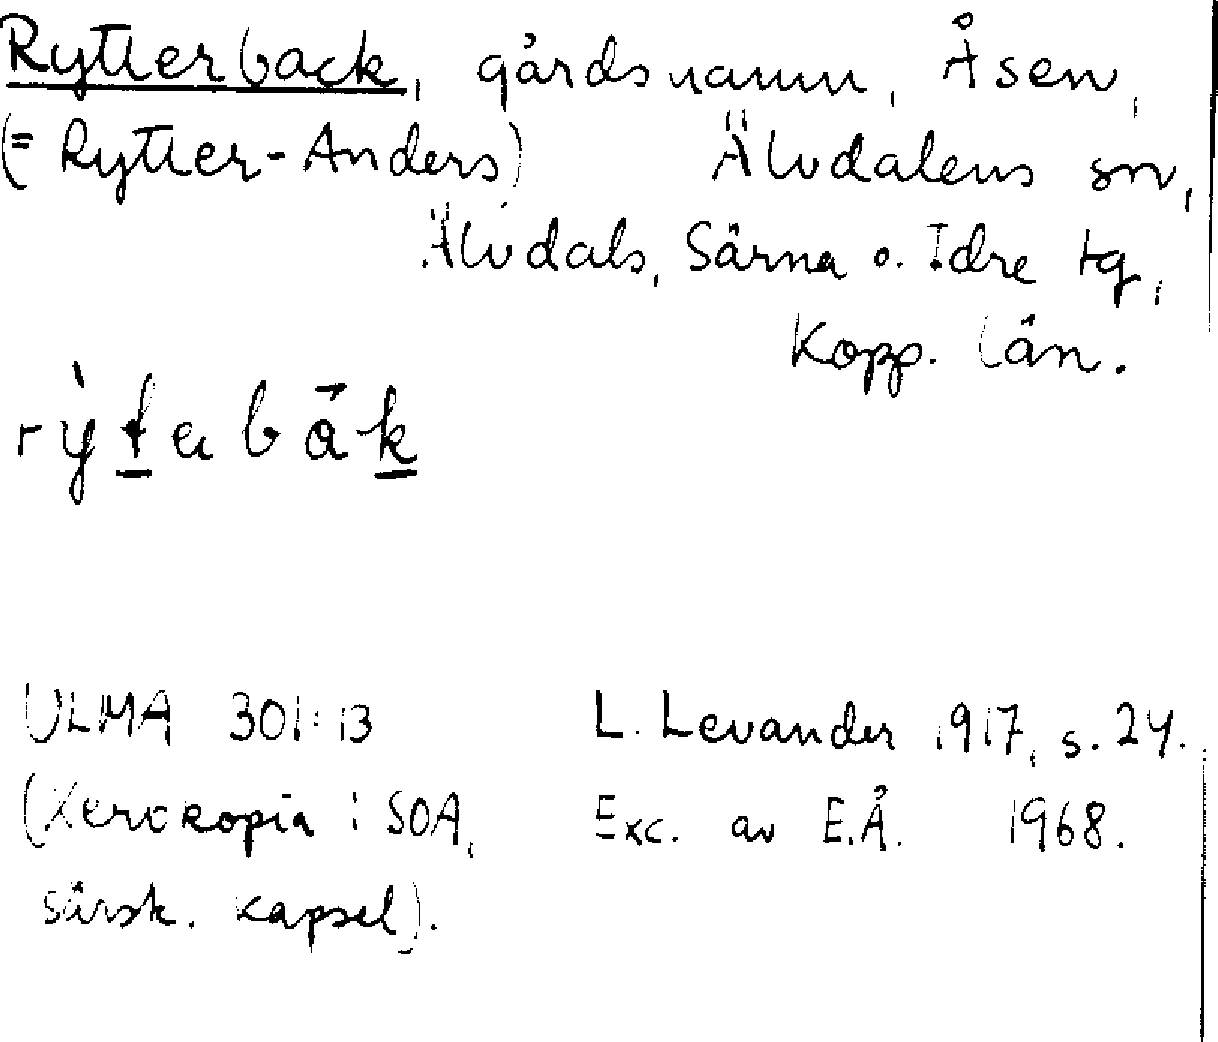 Rytterback, gårdsnamn, Åsen,
(= Rytter-Anders) Älvdalens sn,
Älvdals, Särna o. Idre tg,
Kopp. län.
ULMA 301:13 L. Levander 1917, s. 24.
(Xerokopia i SOA, Exc. av E.Å. 1968.
särsk. kapsel).